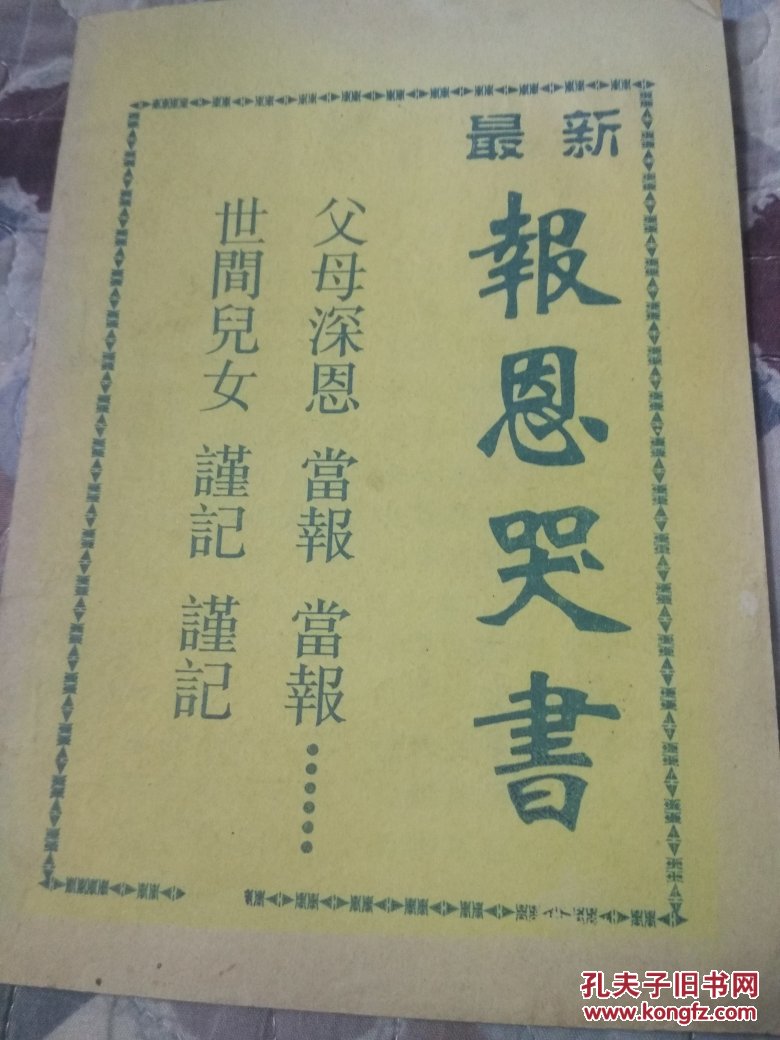 新最
報恩哭書
父母深恩 當報 當報······
世間兒女 謹記 謹記
孔夫子旧书网
www.kongfz.com